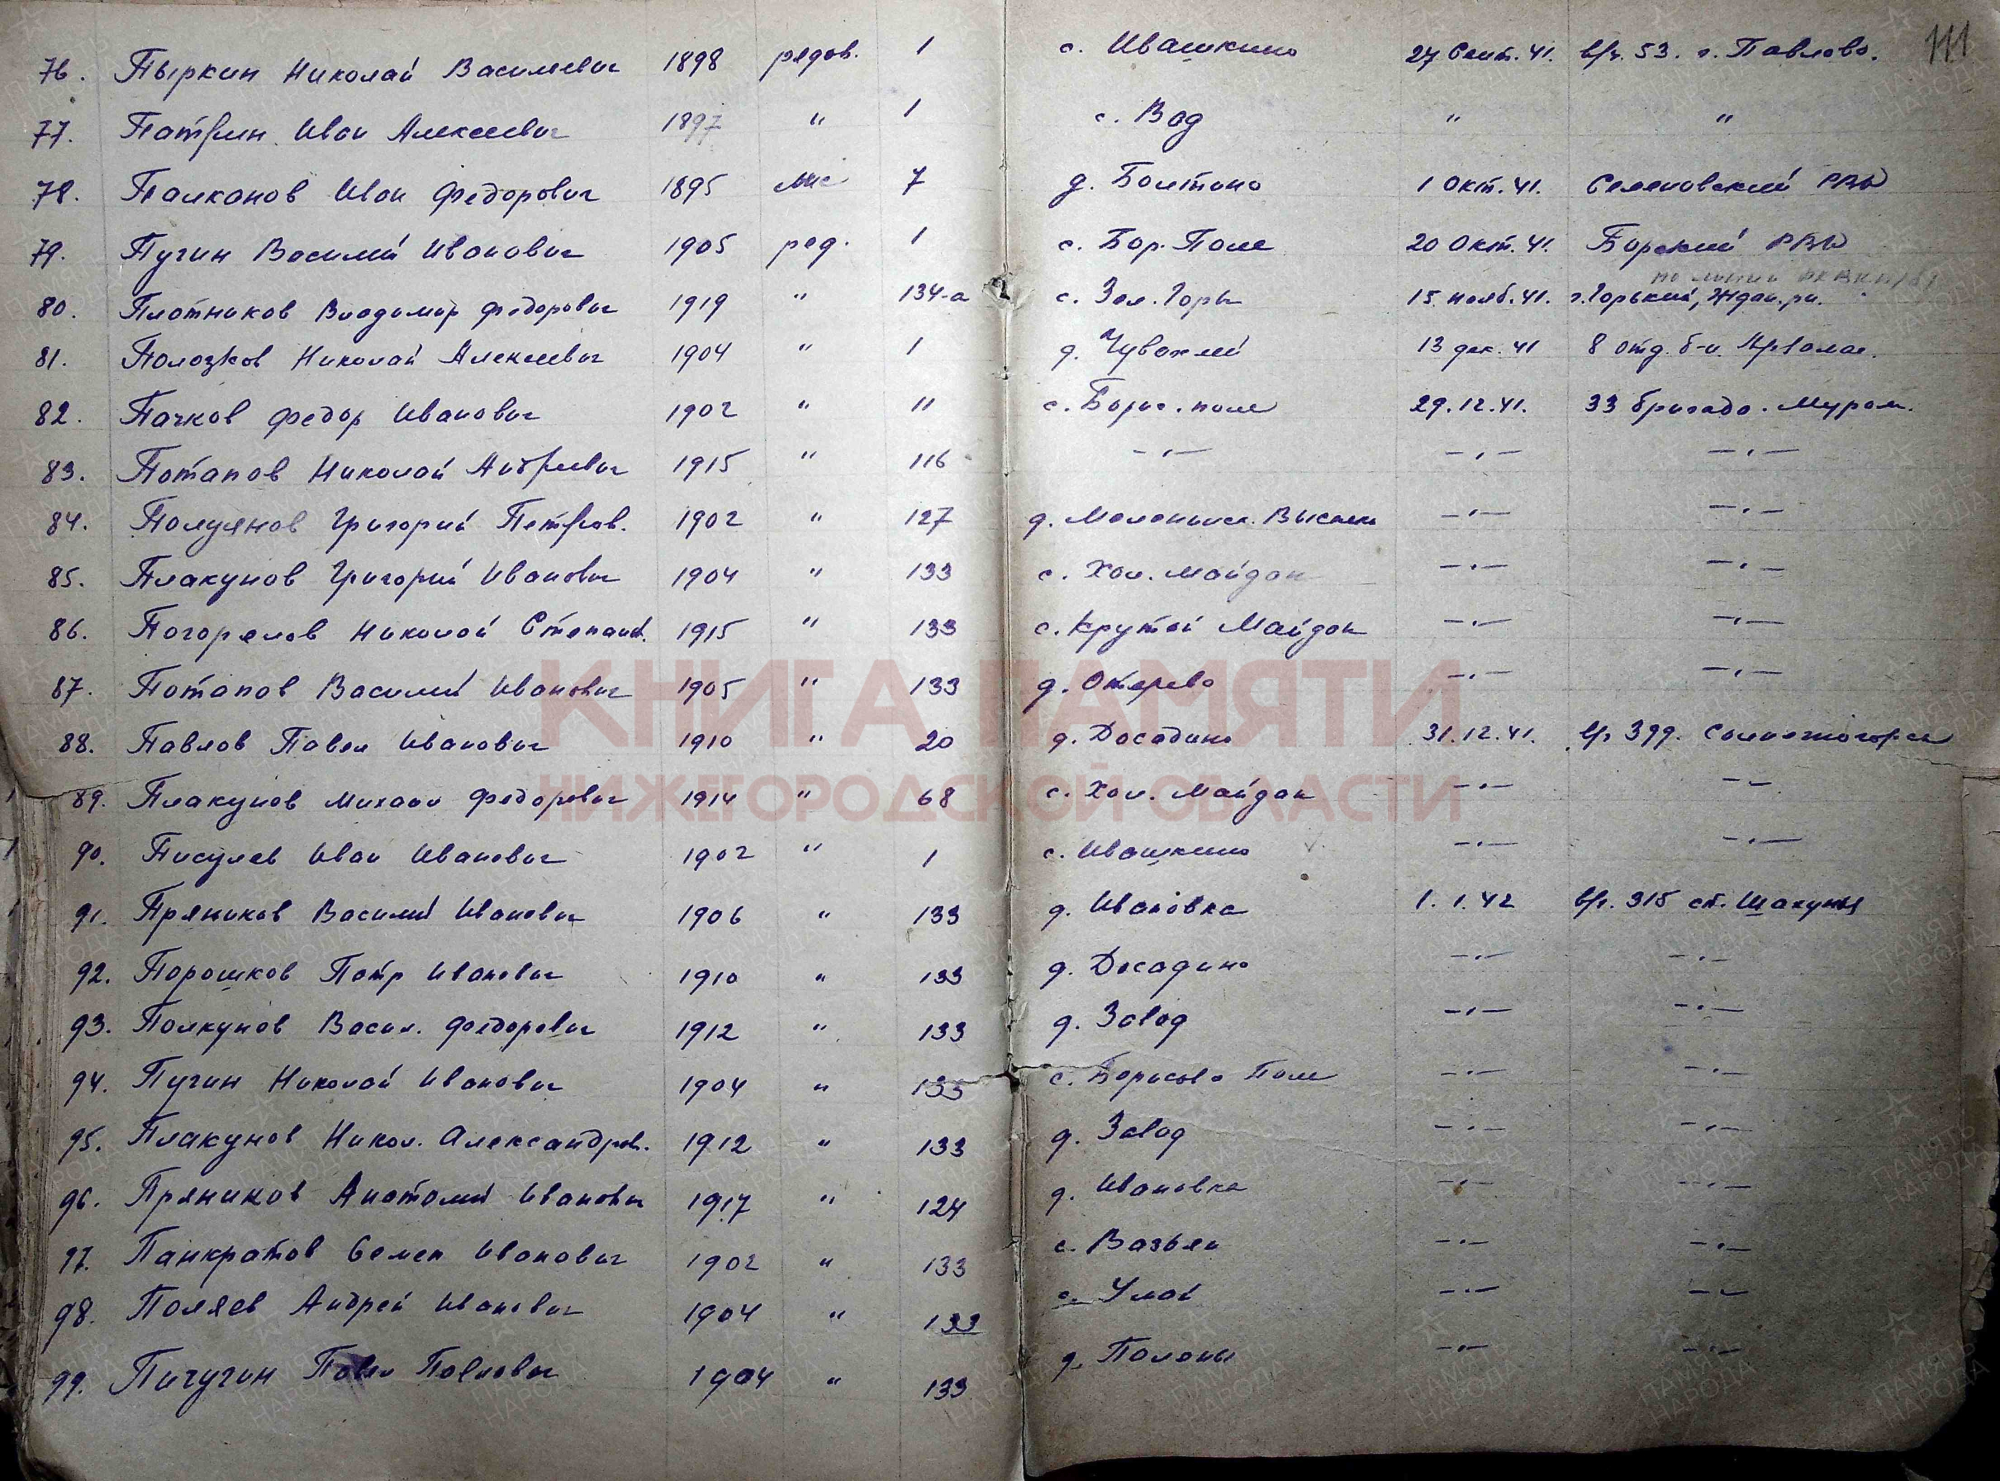 111
76. Пыркин Николай Васильевич 1898 рядов. 1 с. Ивашкино 27 Сент. 41. в/ч. 53. г. Павлово.
77. Патрин Иван Алексеевич 1897 " 1 с. Вад " "
78. Палканов Иван Федорович 1895 мл с 7 д. Болтино 1 Окт. 41. Семеновский РВК
79. Пугин Василий Иванович 1905 ряд. 1 с. Бор. Поле 20 Окт. 41. Борский РВК
по линии РКВКП(б)
80. Плотников Владимир Федорович 1919 " 134-а с. Зел. Горы 15 нояб. 41. г. Горький, Ждан. рн.
81. Полозков Николай Алексеевич 1904 " 1 д. Чувахлей 13 дек. 41 8 отд. б-н. Арзамас.
82. Пачков Федор Иванович 1902 " 11 с. Борис. поле 29.12.41. 33 бригада. Муром.
83. Потапов Николай Андреевич 1915 " 116 -"- -"- -"-
84. Полуянов Григорий Петров. 1902 " 127 д. Выселки -"- -"-
85. Плакунов Григорий Иванович 1904 " 133 с. Хол. Майдан -"- -"-
86. Погорелов Николай Степанов. 1915 " 133 с. Крутой Майдан -"- -"-
87. Потапов Василий Иванович 1905 " 133 д. Отарево -"- -"-
КНИГА ПАМЯТИ
88. Павлов Павел Иванович 1910 " 20 д. Досадино 31.12.41. в/ч 399. Солнечногорск
89. Плакунов Михаил Федорович 1914 " 68 с. Хол. Майдан -"- -"-
НИЖЕГОРОДСКОЙ ОБЛАСТИ
90. Писулев Иван Иванович 1902 " 1 с. Ивашкино -"- -"-
91. Пряников Василий Иванович 1906 " 133 д. Ивановка 1.1.42 в/ч. 315 ст. Шахунья
92. Порошков Петр Иванович 1910 " 133 д. Досадино -"- -"-
93. Полкунов Васил. Федорович 1912 " 133 д. Завод -"- -"-
94. Пугин Николай Иванович 1904 " 133 с. Борисово Поле -"- -"-
95. Плакунов Никол. Александров. 1912 " 133 д. Завод -"- -"-
96. Пряников Анатолий Иванович 1917 " 124 д. Ивановка -"- -"-
97. Панкратов Семен Иванович 1902 " 133 с. Вазьян -"- -"-
98. Поляев Андрей Иванович 1904 " 133 с. Умай -"- -"-
99. Пичугин Павел Павлович 1904 " 133 д. Поляны -"- -"-